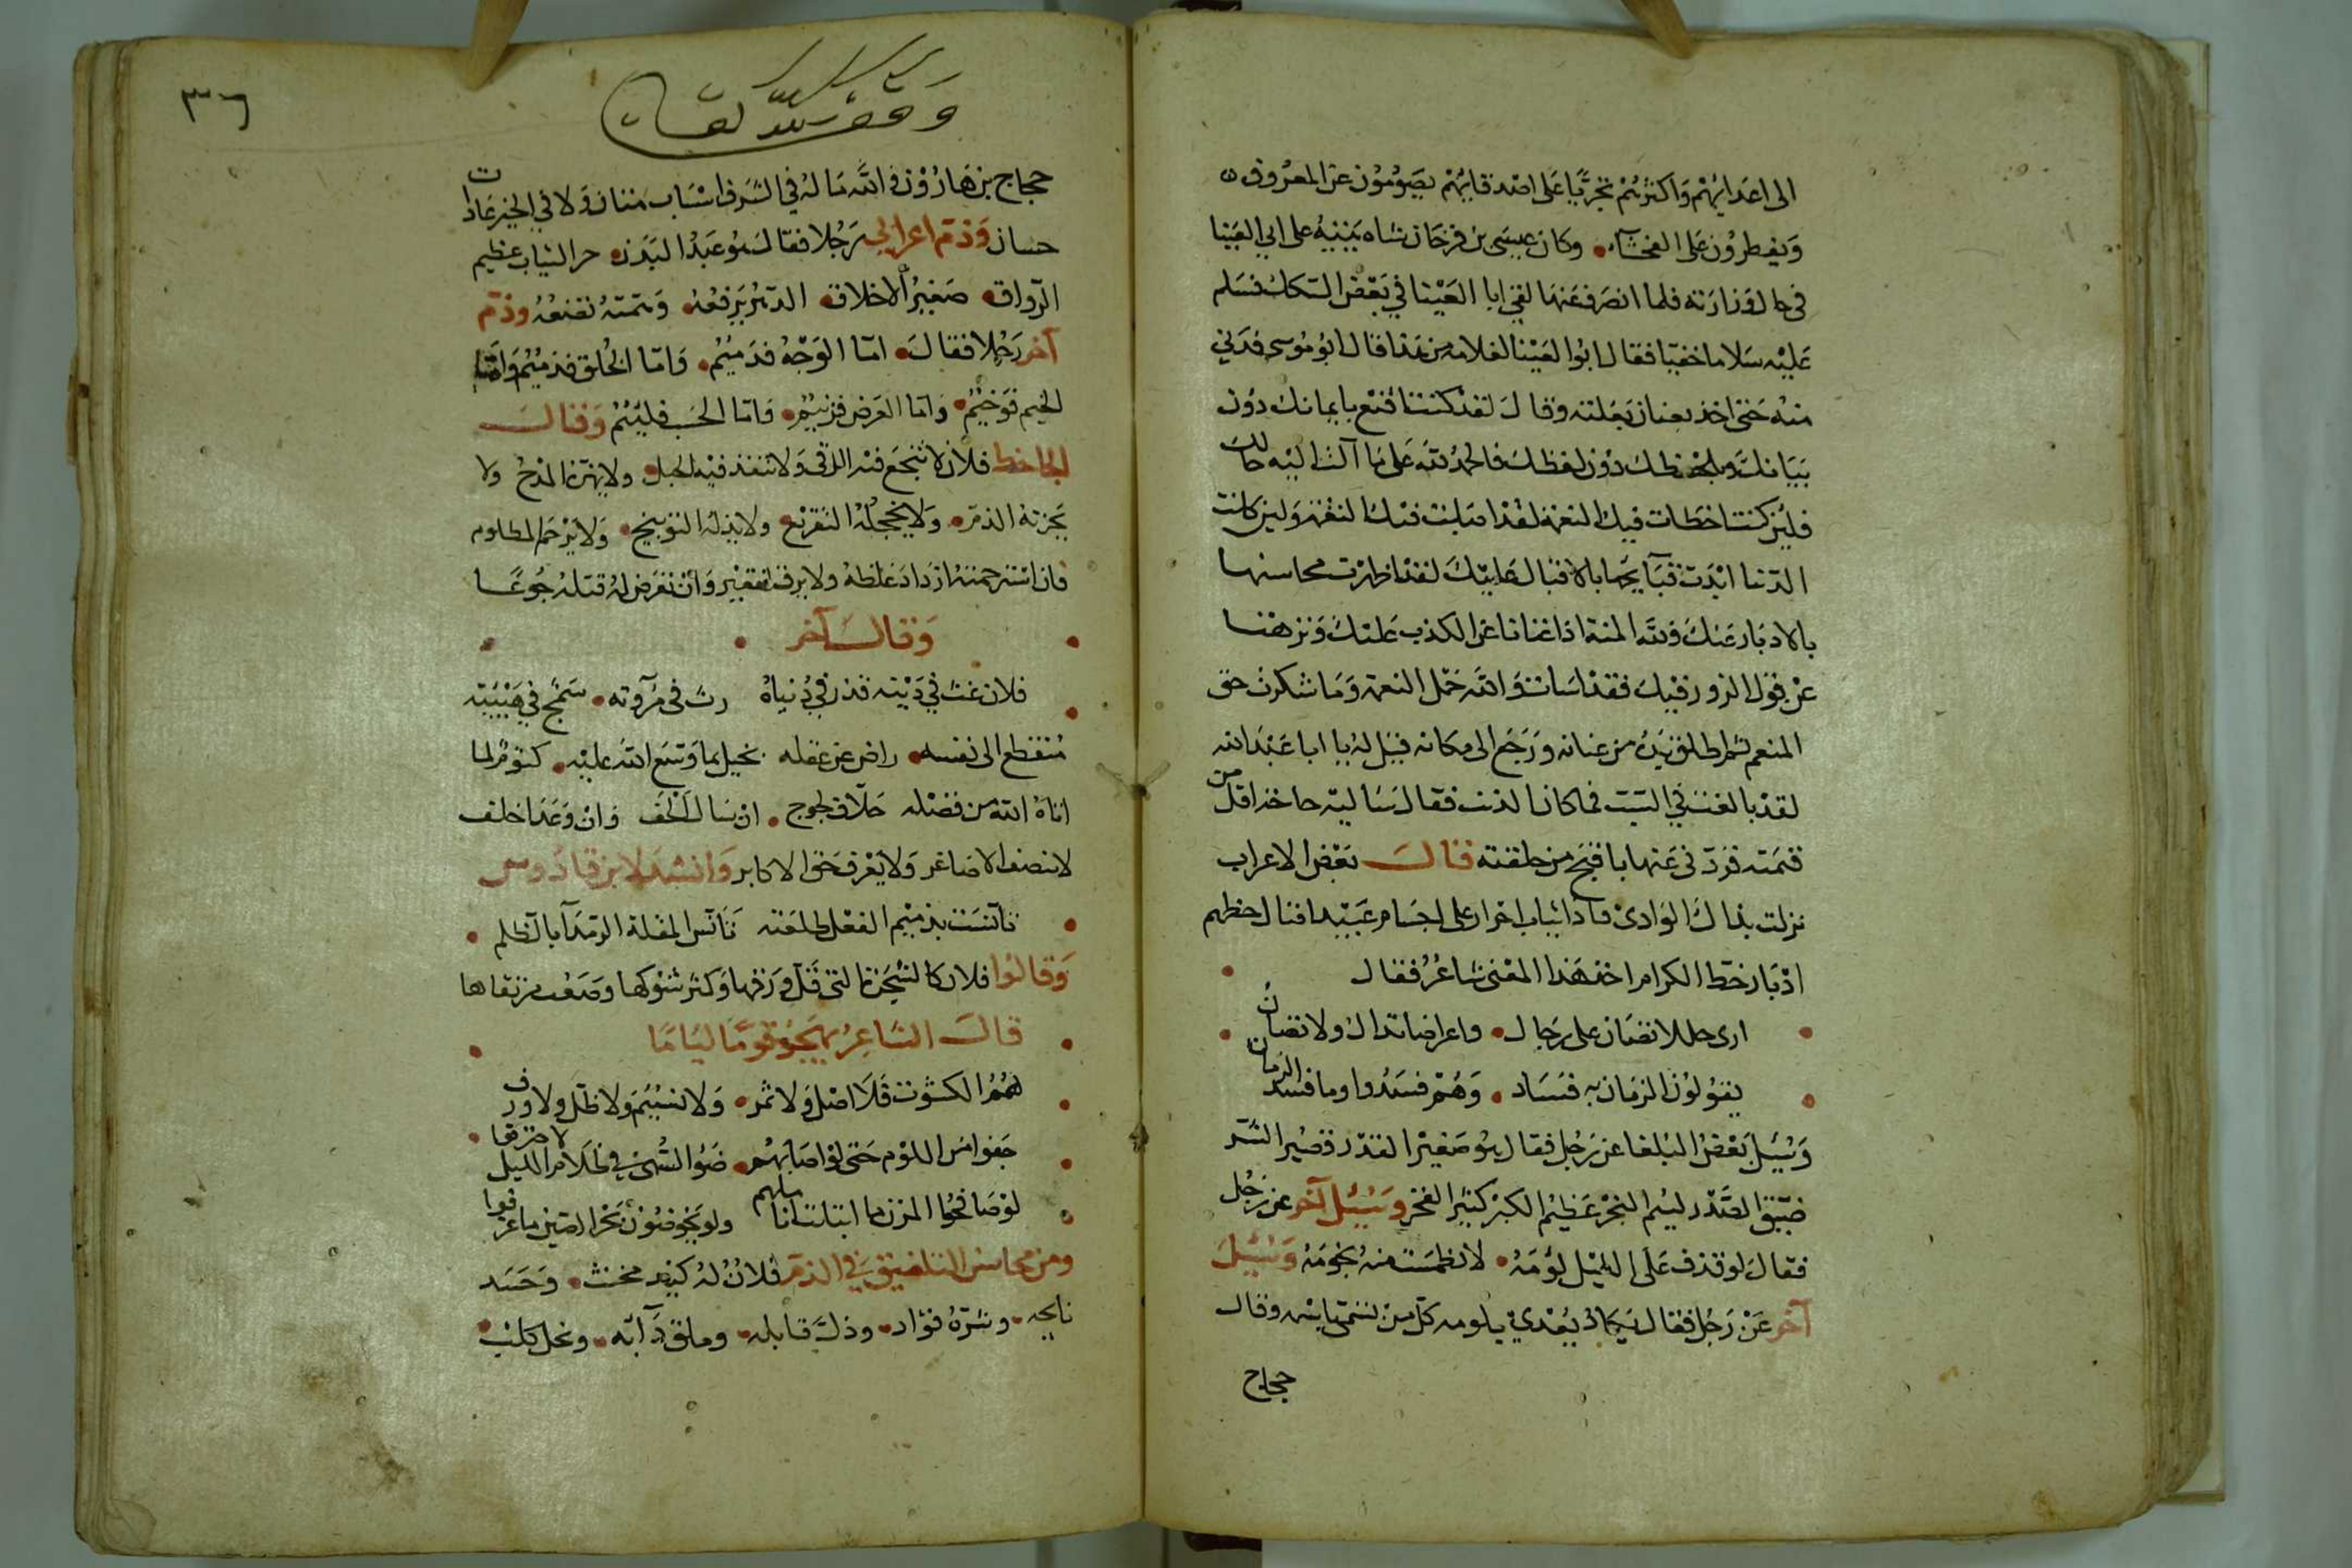 الى اعدايهم واكثرهم تجرّيا على اصدقايهم يصومون عن المعروف
ويفطرون على الفحشاء وكان عيسى بن فرخان شاه يتيه على ابي العينا
في حال وزارته فلما انصرف عنها لقي ابا العينا في بعض السكك فسلم
عليه سلاما خفيا فقال ابو العينا لغلامه من هذا قال ابو موسى فدني
منه حتى اخذ بعنان بغلته وقال لقد كنت اقنع بايمانك دون
بيانك وبلحظك دون لفظك فالحمد لله على ما آلت اليه حالك
فلين كنت اخطات فيك النعمة لقد اصابت فيك النقمة ولين كانت
الدنيا ابدت قبايحها بالاقبال عليك لقد اظهرت محاسنها
بالادبار عنك ولله المنة اذ اغنانا عن الكذب عليك ونزهنا
عن قول الزور فيك فقد اسات والله حمل النعم وما شكرت حق
المنعم ثم اطلق يده من عنانه ورجع الى مكانه فقيل له يا ابا عبد الله
لقد بالغت في السب فما كان الذنب فقال سالته حاجة اقل من
قيمته فردني عنها باقبح من خلقته قال بعض الاعراب
نزلت بذاك الوادي فاذا ثياب احرار على اجسام عبيد اقبال حظهم
ادبار حظ الكرام اخذ هذا المعنى شاعر فقال
ارى حللا تصان على رجال واعراضا تدال ولا تصان
يقولون الزمان به فساد وهم فسدوا وما فسد الزمان
وسيل بعض البلغا عن رجل فقال هو صغير القدر قصير الشبر
ضيق الصدر ليم النجر عظيم الكبر كثير الفخر وسيل آخر عن رجل
فقال لو قذف على الليل لؤمه لانطمست منه نجومه وسيل
آخر عن رجل فقال يكاد يعدي بلومه كل من تسمى باسمه وقال
حجاج
٣٦
وقف لله تعالى
حجاج بن هارون والله ما له في الشرف اسباب متان ولا في الخير عادات
حسان وذم اعرابي رجلا فقال هو عبد البدن حر الثياب عظيم
الرواق صغير الاخلاق الدهر يرفعه وهمته تضعه وذم
آخر رجلا فقال اما الوجه فدميم واما الخلق فذميم واما
الخيم فوخيم واما العرض فزنيم واما الحسب فليم وقال
الجاحظ فلان لا تنجع فيه الرقى ولا تنفذ فيه الحيل ولا يهزه المدح ولا
يحزنه الذم ولا يخجله التقريع ولا يذله التوبيخ ولا يرحم المظلوم
فان استرحمته ازداد غلظه ولا يرق لفقير وان تعرض له قتله جوعا
وقال آخر
فلان غث في دينه قذر في دنياه رث في مروته سمج في هيبته
منقطع الى نفسه راض عن عقله بخيل بما وسع الله عليه كتوم لما
اتاه الله من فضله حلاف لجوج ان سال الحف وان وعد اخلف
لا ينصف الاصاغر ولا يعرف حق الاكابر وانشد لابن قادوس
تآنست بذميم الفعل طلعته تآنس المقلة الرمدا بالظلم
وقالوا فلان كالشجرة التي قل ورقها وكثر شوكها وصعب مرتقاها
قال الشاعر يهجو قوما لياما
هم الكشوث فلا اصل ولا ثمر ولا نسيم ولا ظل ولا ورق
جفوا من اللوم حتى لو اصابهم ضو السهى في ظلام الليل لاحترقوا
لو صافحوا المزن ما ابتلت اناملهم ولو يخوضون بحر الصين ما غرقوا
ومن محاسن التلفيق في الذم فلان له كيد مخنث وحسد
نايحه وشره قواد وذل قابله وملق دايه وبخل كلب